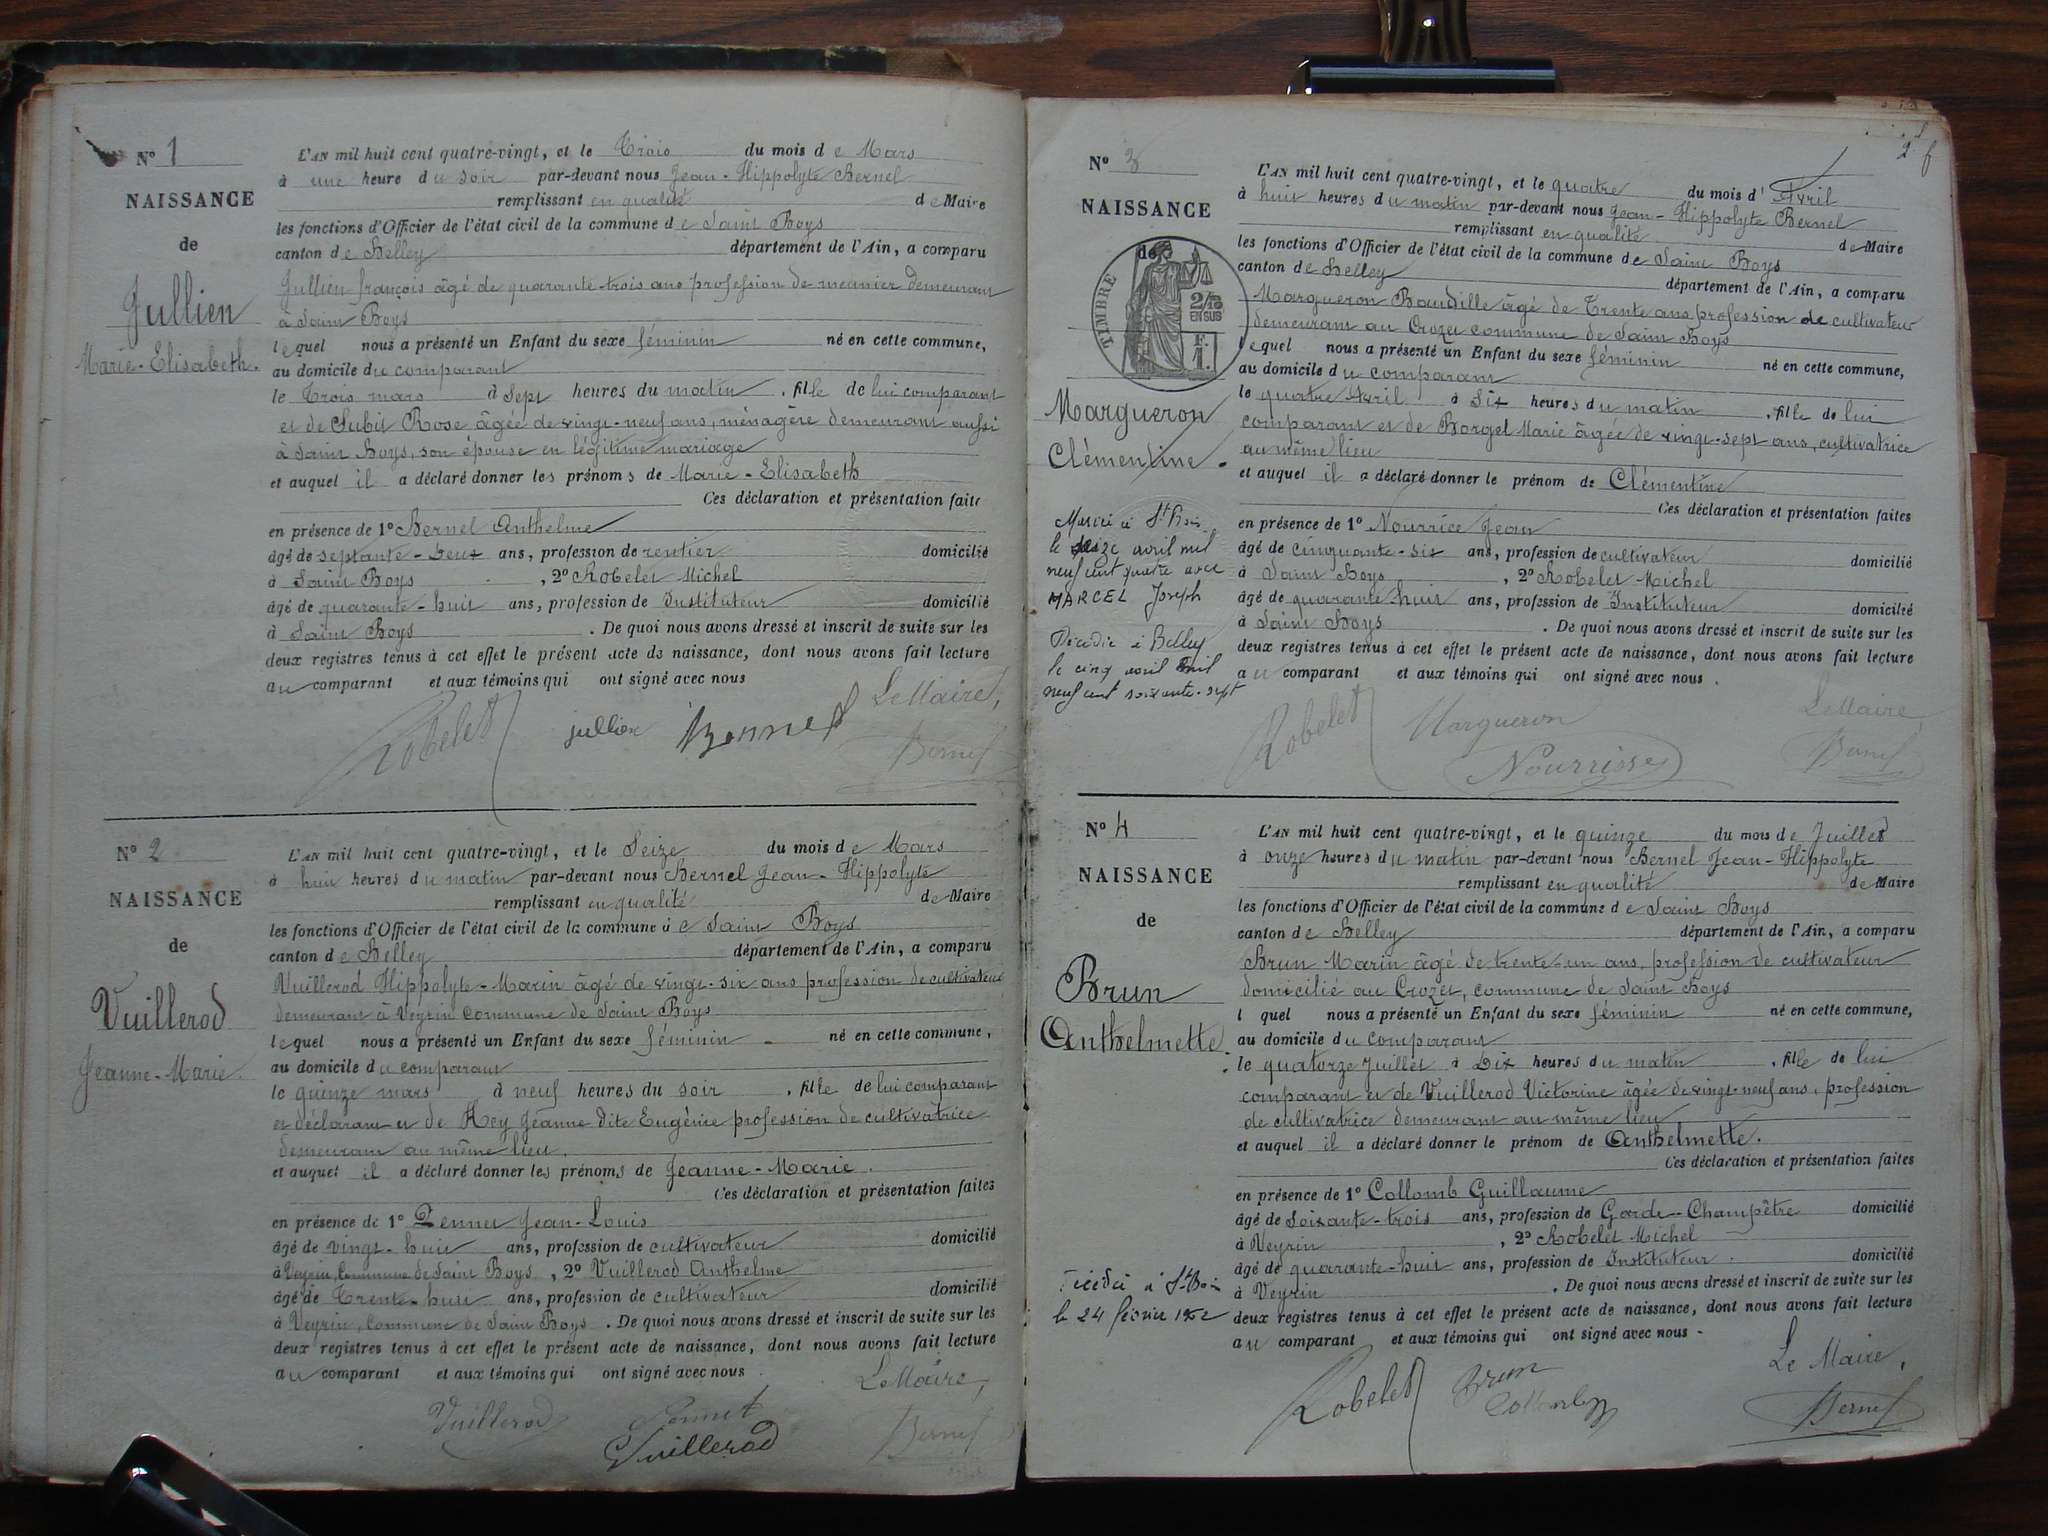 N° 1
NAISSANCE
de
Jullien
Marie-Elisabeth.
L'AN mil huit cent quatre-vingt, et le Trois du mois de Mars
à une heure du soir par-devant nous Jean-Hippolyte Bernel
remplissant en qualité de Maire
les fonctions d'Officier de l'état civil de la commune de Saint Boys
canton de Belley département de l'Ain, a comparu
Jullien françois âgé de quarante-trois ans profession de meunier demeurant
à Saint Boys
lequel nous a présenté un Enfant du sexe féminin né en cette commune,
au domicile du comparant
le Trois mars à Sept heures du matin, fille de lui comparant
et de Subit Rose âgée de vingt-neuf ans, ménagère demeurant aussi
à Saint Boys, son épouse en légitime mariage
et auquel il a déclaré donner les prénoms de Marie-Elisabeth
Ces déclaration et présentation faites
en présence de 1° Bernel Anthelme
âgé de septante-deux ans, profession de rentier domicilié
à Saint Boys, 2° Robelet Michel
âgé de quarante-huit ans, profession de Instituteur domicilié
à Saint Boys. De quoi nous avons dressé et inscrit de suite sur les
deux registres tenus à cet effet le présent acte de naissance, dont nous avons fait lecture
au comparant et aux témoins qui ont signé avec nous
Le Maire,
Robelet jullien Bernel Bernel
N° 2
NAISSANCE
de
Vuillerod
Jeanne-Marie.
L'AN mil huit cent quatre-vingt, et le Seize du mois de Mars
à huit heures du matin par-devant nous Bernel Jean-Hippolyte
remplissant en qualité de Maire
les fonctions d'Officier de l'état civil de la commune de Saint Boys
canton de Belley département de l'Ain, a comparu
Vuillerod Hippolyte-Marin âgé de vingt-six ans profession de cultivateur
demeurant à Veyrin commune de Saint Boys
lequel nous a présenté un Enfant du sexe féminin né en cette commune,
au domicile du comparant
le quinze mars à neuf heures du soir, fille de lui comparant
et déclarant et de Rey Jeanne dite Eugénie profession de cultivatrice
demeurant au même lieu.
et auquel il a déclaré donner les prénoms de Jeanne-Marie.
Ces déclaration et présentation faites
en présence de 1° Pennet Jean-Louis
âgé de vingt-huit ans, profession de cultivateur domicilié
à Veyrin, Commune de Saint Boys, 2° Vuillerod Anthelme
âgé de Trente-huit ans, profession de cultivateur domicilié
à Veyrin, Commune de Saint Boys. De quoi nous avons dressé et inscrit de suite sur les
deux registres tenus à cet effet le présent acte de naissance, dont nous avons fait lecture
au comparant et aux témoins qui ont signé avec nous.
Le Maire,
Vuillerod Pennet Bernel
Vuillerod
2
N° 3
NAISSANCE
de
TIMBRE
2/10 EN SUS
F. 1.
Margueron
Clémentine.
Mariée à St Bois
le seize avril mil
neuf cent quatre avec
MARCEL Joseph
Décédée à Belley
le cinq avril mil
neuf cent soixante-sept
L'AN mil huit cent quatre-vingt, et le quatre du mois d'Avril
à huit heures du matin par-devant nous Jean-Hippolyte Bernel
remplissant en qualité de Maire
les fonctions d'Officier de l'état civil de la commune de Saint Boys
canton de Belley département de l'Ain, a comparu
Margueron Baudille âgé de Trente ans profession de cultivateur
demeurant au Crozet commune de Saint Boys
lequel nous a présenté un Enfant du sexe féminin né en cette commune,
au domicile du comparant
le quatre Avril à Six heures du matin, fille de lui
comparant et de Borgel Marie âgée de vingt-sept ans, cultivatrice
au même lieu
et auquel il a déclaré donner le prénom de Clémentine
Ces déclaration et présentation faites
en présence de 1° Nourrice Jean
âgé de cinquante-six ans, profession de cultivateur domicilié
à Saint Boys, 2° Robelet Michel
âgé de quarante huit ans, profession de Instituteur domicilié
à Saint Boys. De quoi nous avons dressé et inscrit de suite sur les
deux registres tenus à cet effet le présent acte de naissance, dont nous avons fait lecture
au comparant et aux témoins qui ont signé avec nous.
Le Maire,
Robelet Margueron Bernel
Nourrisse
N° 4
NAISSANCE
de
Brun
Anthelmette.
Décédée à St Bois
le 24 février 1962
L'AN mil huit cent quatre-vingt, et le quinze du mois de Juillet
à onze heures du matin par-devant nous Bernel Jean-Hippolyte
remplissant en qualité de Maire
les fonctions d'Officier de l'état civil de la commune de Saint Boys
canton de Belley département de l'Ain, a comparu
Brun Marin âgé de trente-un ans, profession de cultivateur
domicilié au Crozet, commune de Saint Boys
l quel nous a présenté un Enfant du sexe féminin né en cette commune,
au domicile du comparant
le quatorze Juillet à Dix heures du matin, fille de lui
comparant et de Vuillerod Victorine âgée de vingt-neuf ans, profession
de cultivatrice demeurant au même lieu
et auquel il a déclaré donner le prénom de Anthelmette.
Ces déclaration et présentation faites
en présence de 1° Collomb Guillaume
âgé de Soixante-trois ans, profession de Garde-Champêtre domicilié
à Veyrin, 2° Robelet Michel
âgé de quarante-huit ans, profession de Instituteur domicilié
à Veyrin. De quoi nous avons dressé et inscrit de suite sur les
deux registres tenus à cet effet le présent acte de naissance, dont nous avons fait lecture
au comparant et aux témoins qui ont signé avec nous.
Le Maire,
Robelet Brun Bernel
Collomb